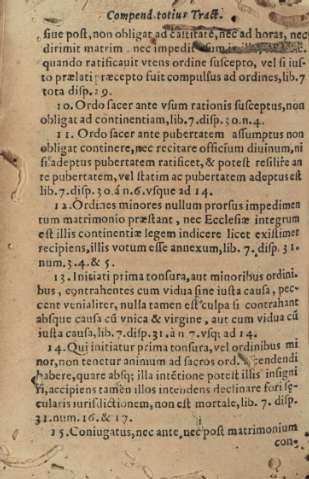 Compend. totius Tract.
siue post, non obligat ad castitatē, nec ad horas, nec
dirimit matrim. nec impedi
quando ratificauit vtens ordine suscepto, vel si ius-
to prælati præcepto fuit compulsus ad ordines, lib. 7
tota disp. 29.
10. Ordo sacer ante vsum rationis susceptus, non
obligat ad continentiam, lib. 7. disp. 30. n. 4.
11. Ordo sacer ante pubertatem assumptus non
obligat continere, nec recitare officium diuinum, ni
si adeptus pubertatem ratificet, & potest resilire an
te pubertatem, vel statim ac pubertatem adeptus est
lib. 7. disp. 30. á n. 6. vsque ad 14.
12. Ordines minores nullum prorsus impedimen
tum matrimonio præstant, nec Ecclesiæ integrum
est illis continentiæ legem indicere licet existimet
recipiens, illis votum esse annexum, lib. 7. disp. 31.
num. 3. 4. & 5.
13. Initiati prima tonsura, aut minoribus ordini-
bus, contrahentes cum vidua sine iusta causa, pec-
cent venialiter, nulla tamen est culpa si contrahant
absque causa cū vnica & virgine, aut cum vidua cū
iusta causa, lib. 7. disp. 31. à n 7. vsq; ad 14.
14. Qui initiatur prima tonsura, vel ordinibus mi
nor, non tenetur animum ad sacros ord. tendendi
habere, quare absq; illa intētione potest illis insigni
ri, accipiens tamen illos intendens declinare fori se-
cularis iurisdictionem, non est mortale, lib. 7. disp.
31. num. 16. & 17.
15. Coniugatus, nec ante, nec post matrimonium
con-